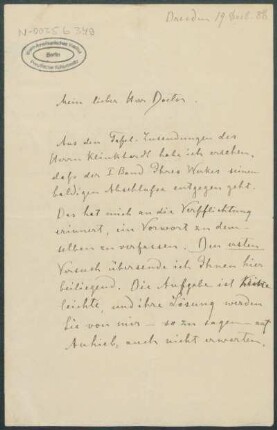 N-0025 G 340
Dresden 19 Oct. 88
Mein lieber Herr Doctor.
Aus den Tafel-Zusendungen des
Herrn Klinkhardt habe ich ersehen,
dass der I Band Ihres Werkes seinem
baldigen Abschlusse entgegen geht.
Das hat mich an die Verpflichtung
erinnert, ein Vorwort zu dem-
selben zu verfassen. Den ersten
Versuch übersende ich Ihnen hier
beiliegend. Die Aufgabe ist keine
leichte, und ihre Lösung werden
Sie von mir – so zu sagen – auf
Anhieb, auch nicht erwarten.